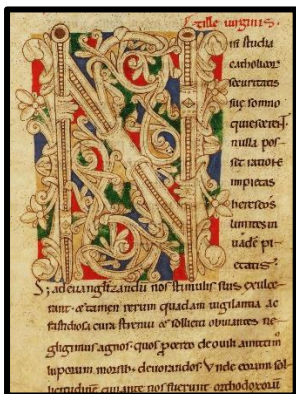 tille uirginis.
N
isi studia
catholicae
securitatis
suo somno
quiesceret
nulla pos-
set ratione
impietas
hereseos
limites in
uadere pi-
etatis.
Si ad euangelizandum nos stimulis suis exulce-
rant. & tamen rerum quadam uigilantia ac
fastidiosa cura strenui & solliciti obuiantes ne-
gligimus agnos. quos porcero de ouili
luporum morsib; deuorandos. Vnde eorum sol-
nos fuerunt orthodoxorum